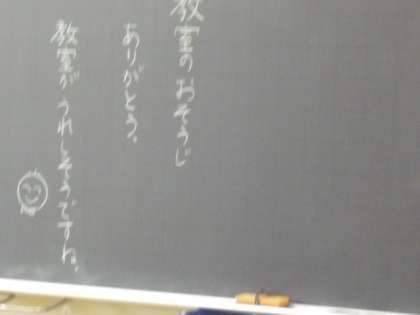 教室のおそうじ
ありがとう。
教室がうれしそうですね。